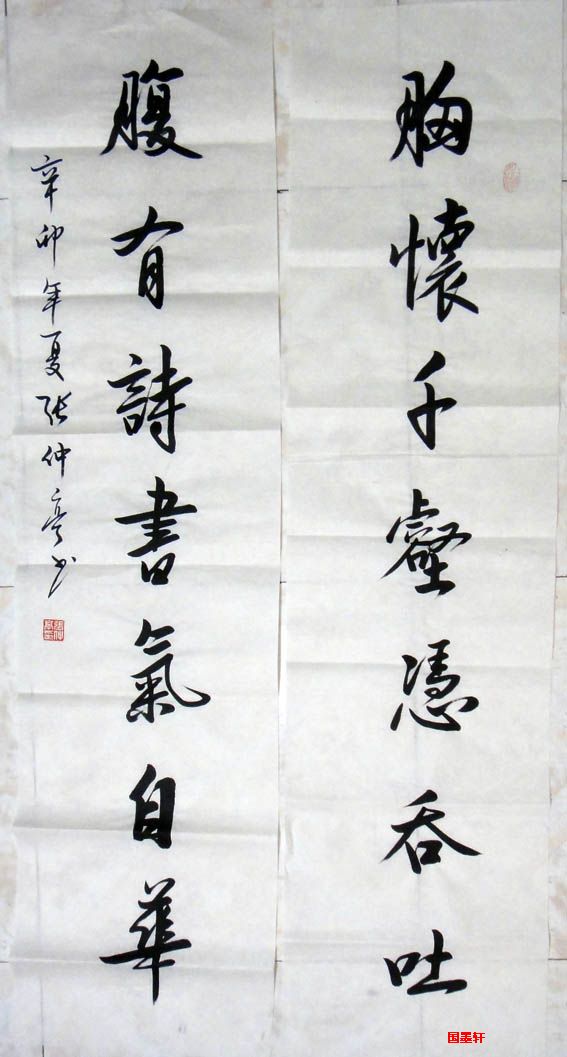 胸懷千壑憑吞吐
腹有詩書氣自華
辛卯年夏張仲亭书
国墨轩